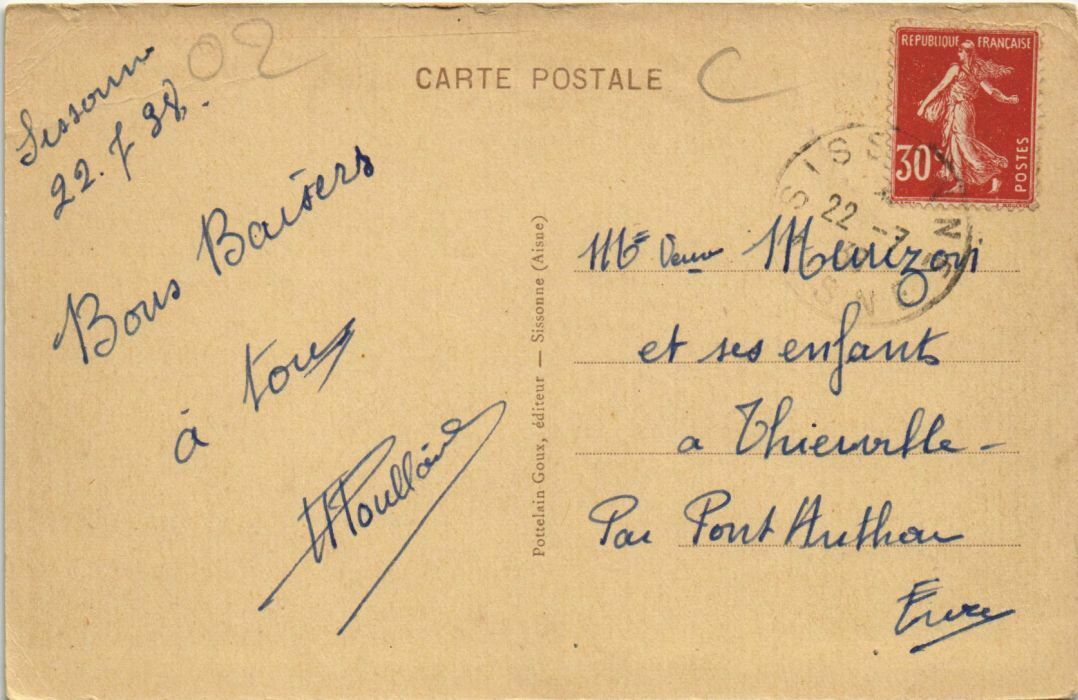 02
CARTE POSTALE
C
RÉPUBLIQUE FRANÇAISE
30c
POSTES
SISSONNE
22 -7
AISNE
Sissonne
22.7 38.
Bons Baisers
à tous
HPoullain
Pottelain Goux, éditeur — Sissonne (Aisne)
Mme Veuve
et ses enfants
a Thierville -
Par Pont Authou
Eure